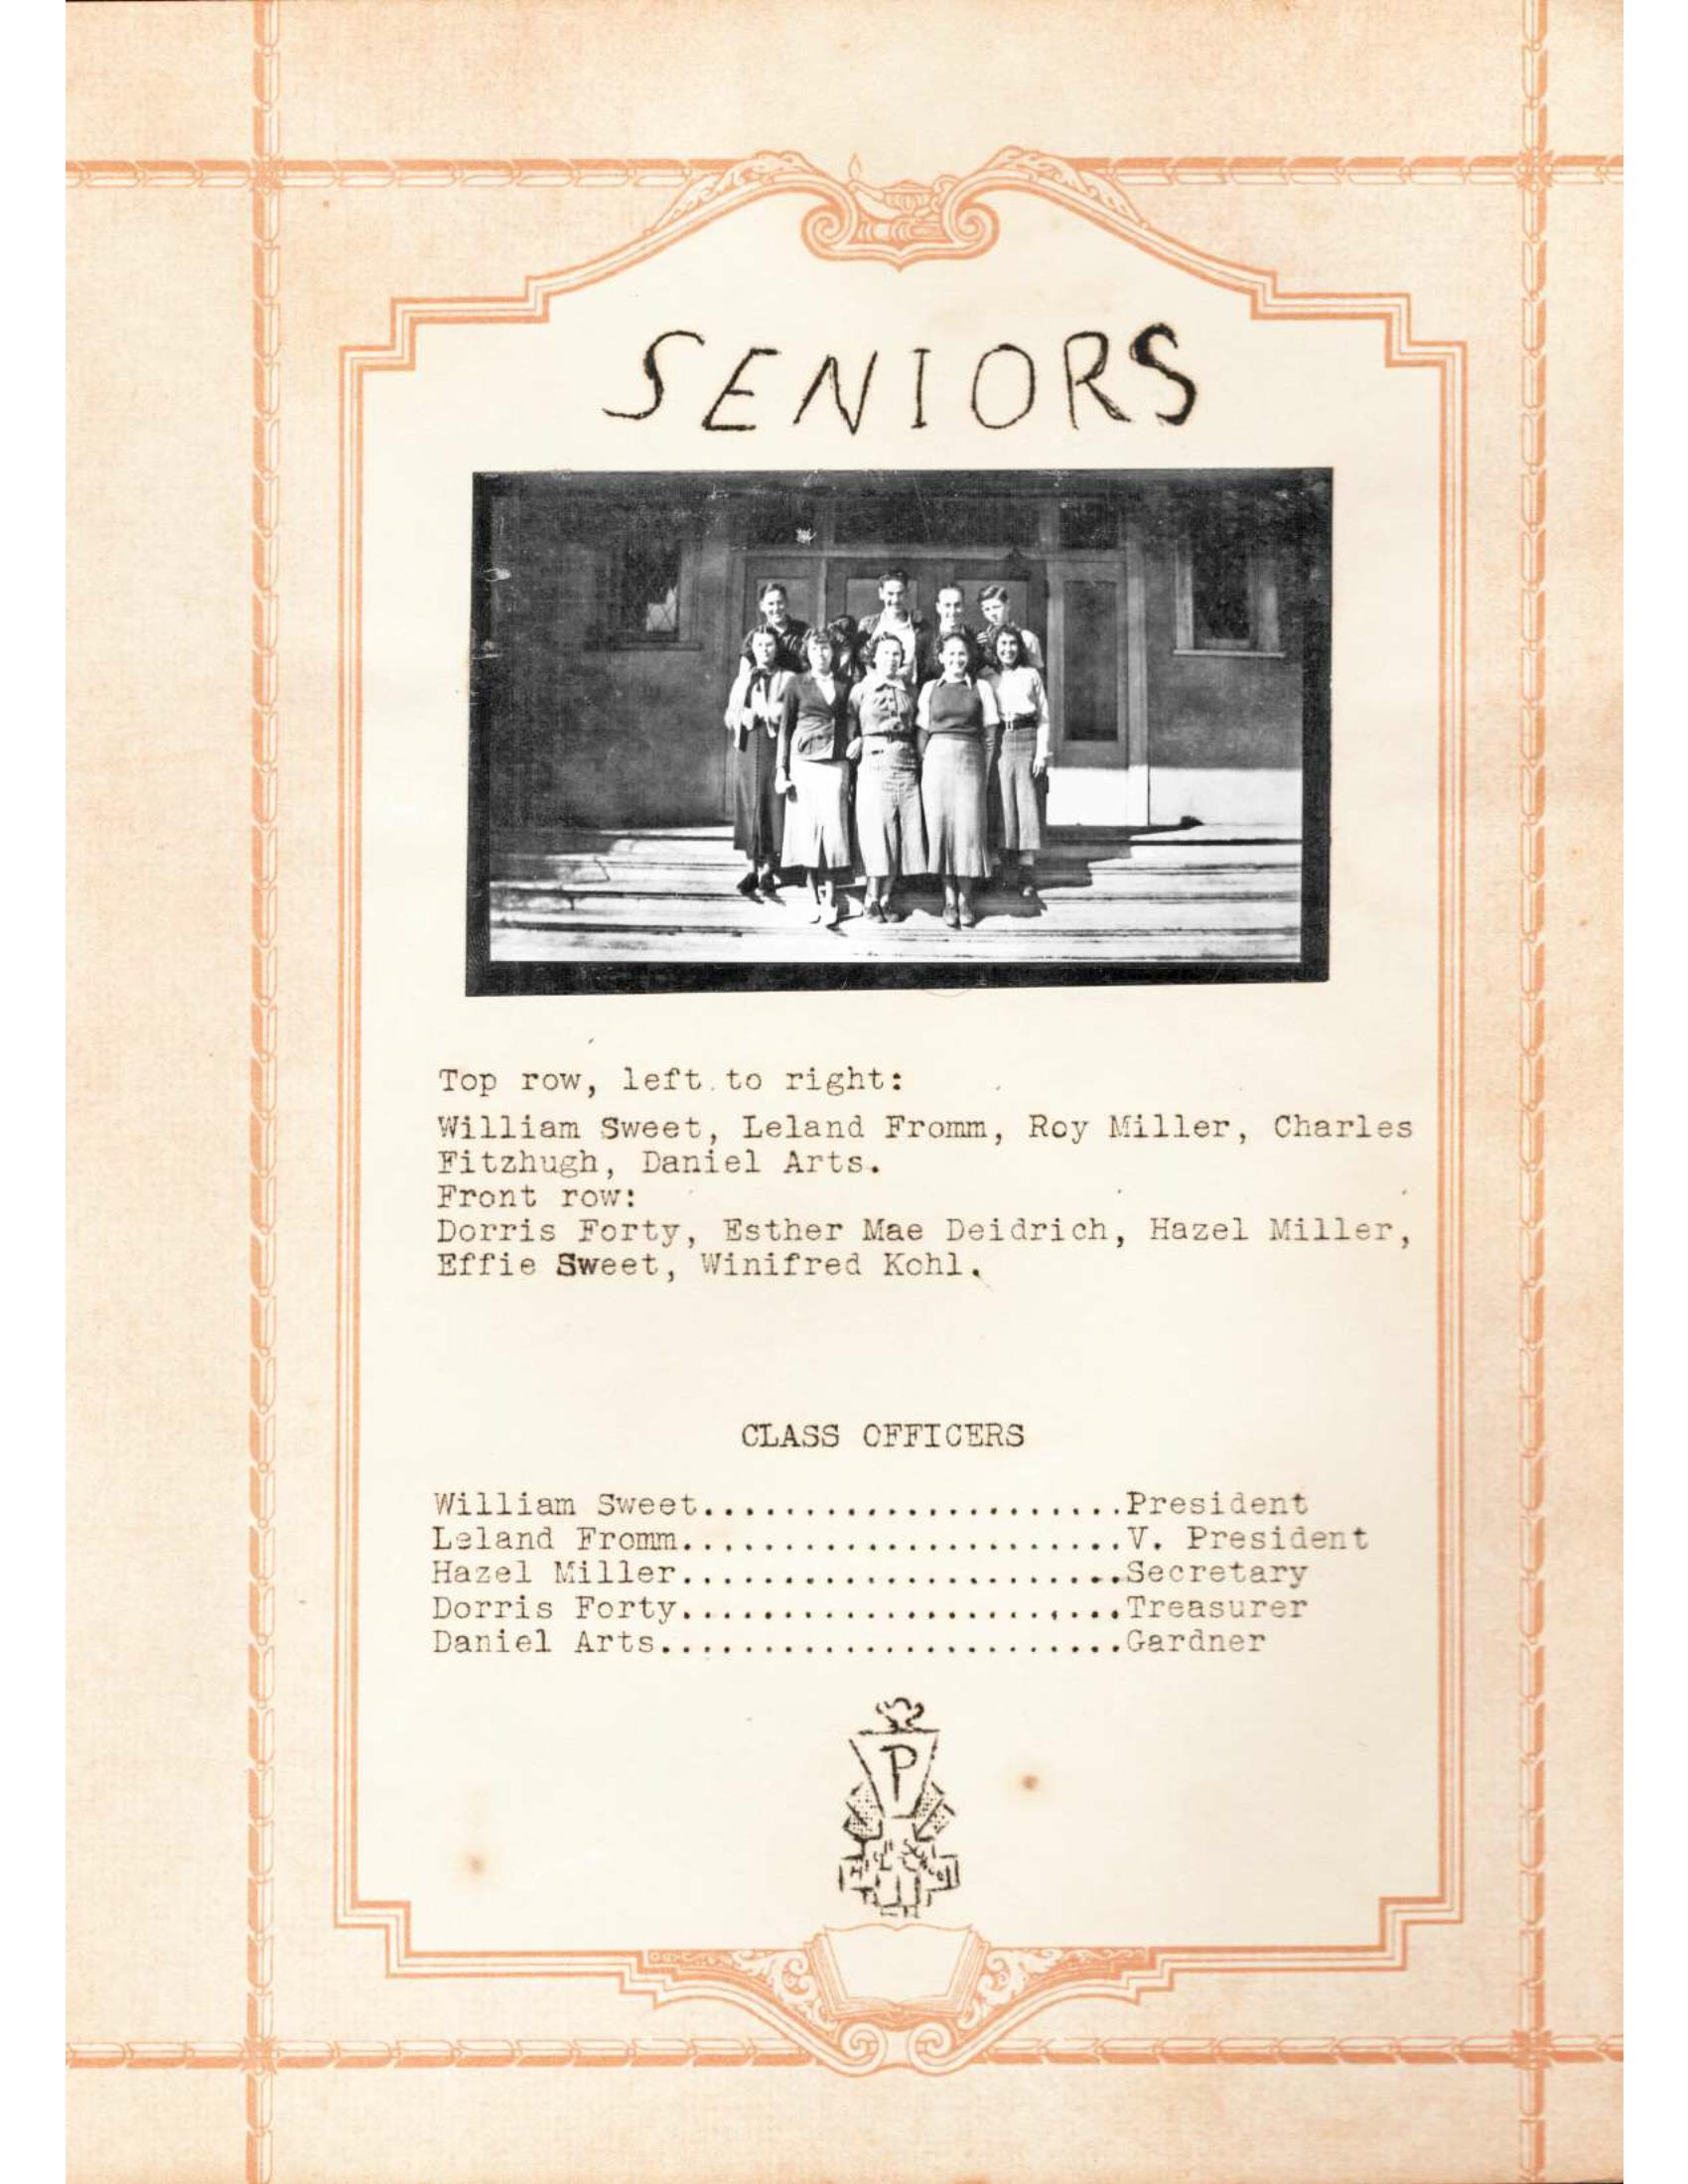 SENIORS
Top row, left to right:
William Sweet, Leland Fromm, Roy Miller, Charles
Fitzhugh, Daniel Arts.
Front row:
Dorris Forty, Esther Mae Deidrich, Hazel Miller,
Effie Sweet, Winifred Kohl.
CLASS OFFICERS
William Sweet.....................President
Leland Fromm......................V. President
Hazel Miller......................Secretary
Dorris Forty......................Treasurer
Daniel Arts.......................Gardner
P